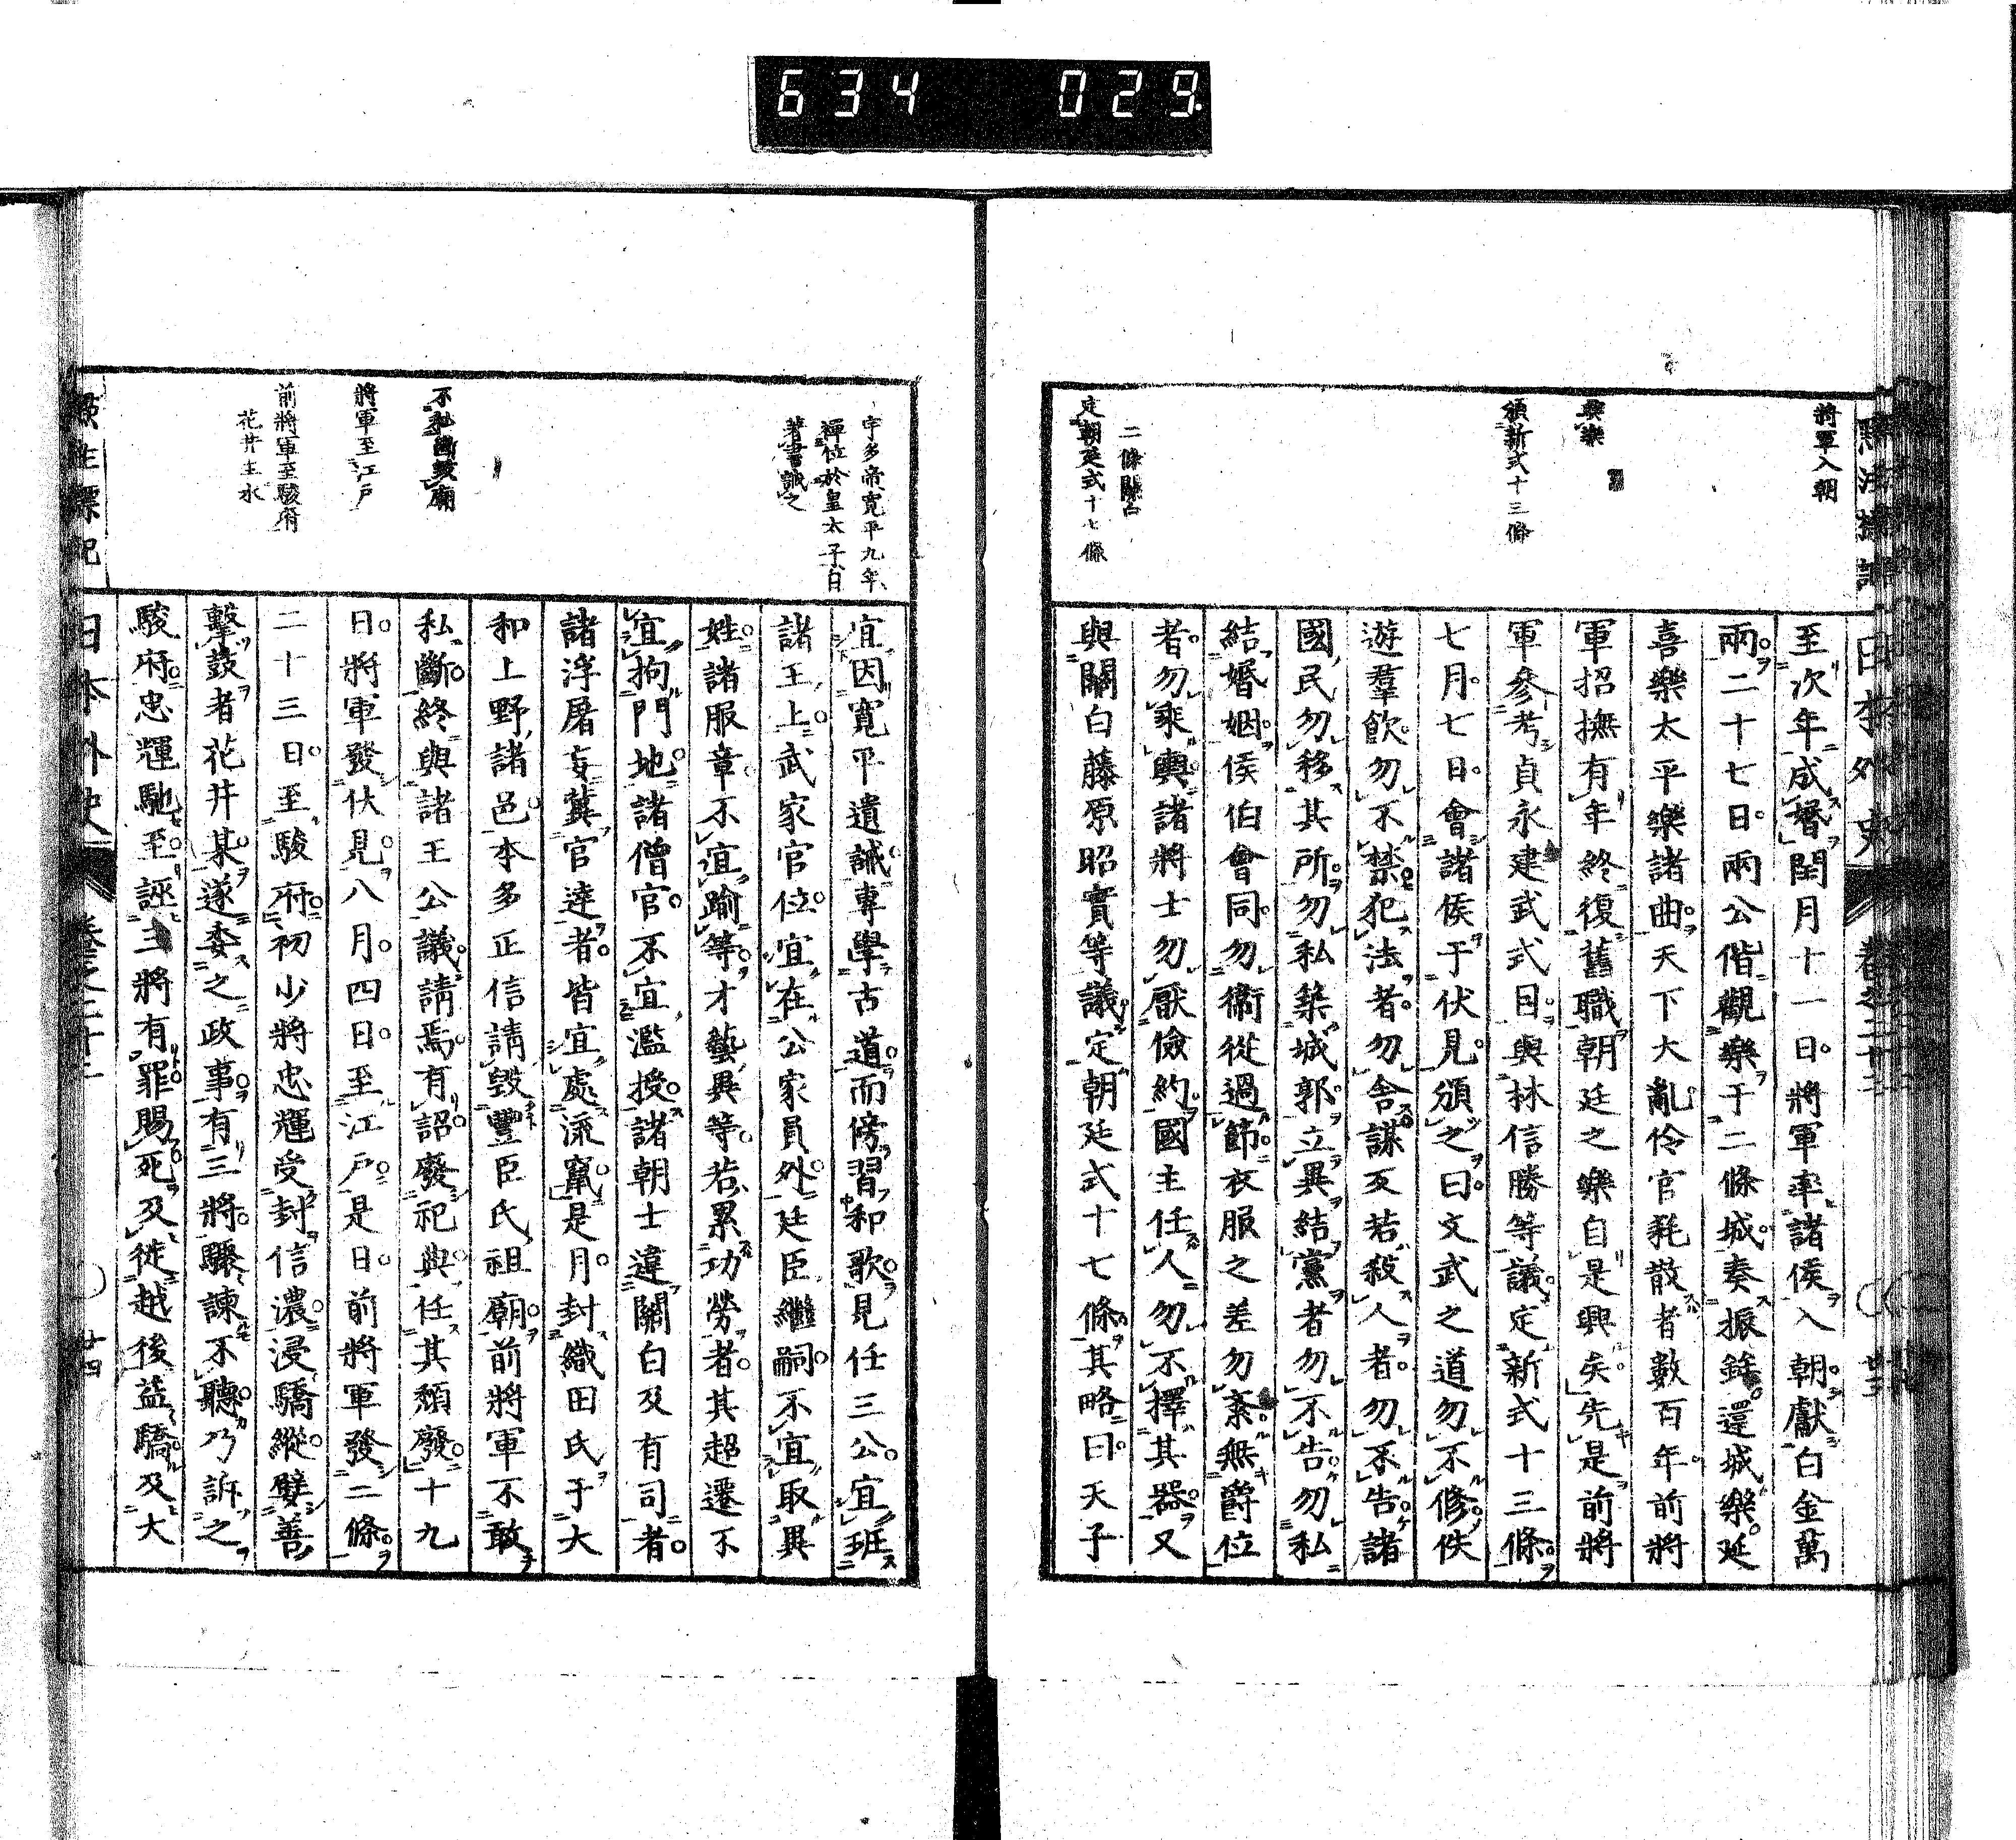 634 029.
將軍入朝
樂樂
頒新式十三條
二條關白
定朝廷式十七條
日本外史
至次年成婚閏月十一日將軍率諸侯入朝獻白金萬
兩二十七日兩公偕觀樂于二條城奏振鉾還城樂延
喜樂太平樂諸曲天下大亂伶官耗散者數百年前將
軍招撫有年終復舊職朝廷之樂自是興矣先是前將
軍參考貞永建武式目與林信勝等議定新式十三條
七月七日會諸侯于伏見頒之曰文武之道勿不修佚
遊羣飮勿不禁犯法者勿舍謀反若殺人者勿不告諸
國民勿移其所勿私築城郭立異結黨者勿不告勿私
結婚姻侯伯會同勿衞從過節衣服之差勿紊無爵位
者勿乘輿諸將士勿厭儉約國主任人勿不擇其器又
與關白藤原昭實等議定朝廷式十七條其略曰天子
宇多帝寬平九年
禪位於皇太子自
著書誡之
不私斷毀廟
將軍至江戶
前將軍至駿府
花井主水
宜因寬平遺誡專學古道而傍習和歌見任三公宜班
諸王上武家官位宜在公家員外廷臣繼嗣不宜取異
姓諸服章不宜踰等才藝異等若累功勞者其超遷不
宜拘門地諸僧官不宜濫授諸朝士違關白及有司者
諸浮屠妄冀官達者皆宜處流竄是月封織田氏于大
和上野諸邑本多正信請毀豐臣氏祖廟前將軍不敢
私斷終與諸王公議請焉有詔廢祀與任其頽廢十九
日將軍發伏見八月四日至江戶是日前將軍發二條
二十三日至駿府初少將忠輝受封信濃浸驕縱嬖善
擊鼓者花井某遂委之政事有三將驟諫不聽乃訴之
駿府忠輝馳至誣三將有罪賜死及徙越後益驕及大
標記
日本外史
廿四